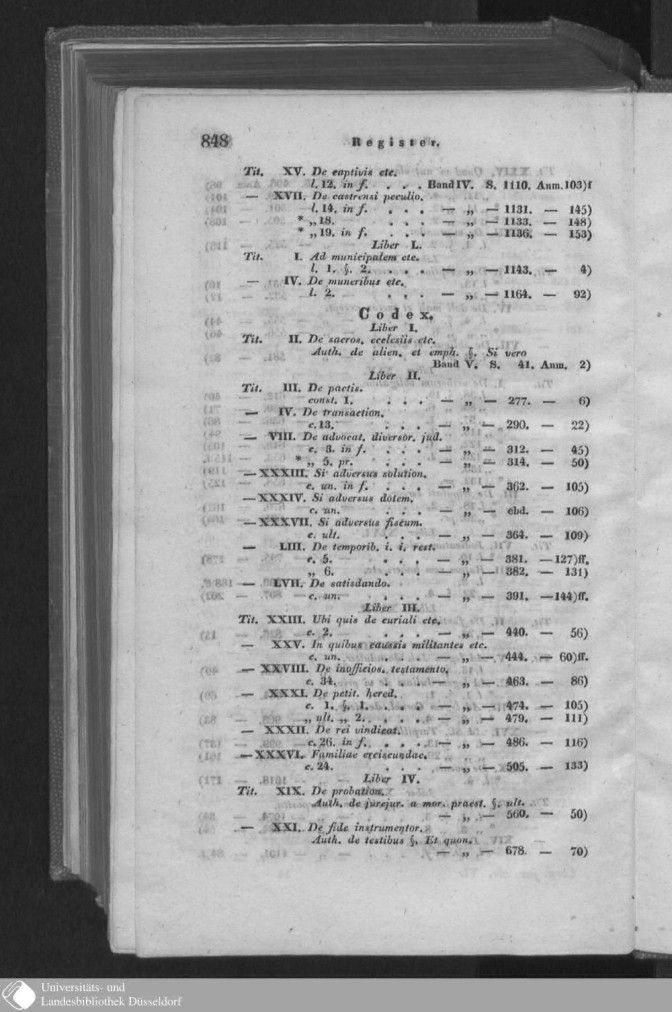 848 Register.
Tit. XV. De captivis etc.
l. 12. in f. . . . Band IV. S. 1110. Anm. 103)f
— XVII. De castrensi peculio.
l. 14. in f. . . . — „ — 1131. — 145)
* „ 18. . . . — „ — 1133. — 148)
* „ 19. in f. . . . — „ — 1136. — 153)
Liber L.
Tit. I. Ad municipalem etc.
l. 1. §. 2. . . . — „ — 1143. — 4)
— IV. De muneribus etc.
l. 2. . . . — „ — 1164. — 92)
Codex.
Liber I.
Tit. II. De sacros. ecclesiis etc.
Auth. de alien. et emph. §. Si vero
Band V. S. 41. Anm. 2)
Liber II.
Tit. III. De pactis.
const. 1. . . . — „ — 277. — 6)
— IV. De transaction.
c. 13. . . . — „ — 290. — 22)
— VIII. De advocat. diversor. jud.
c. 3. in f. . . . — „ — 312. — 45)
* „ 5. pr. . . . — „ — 314. — 50)
— XXXIII. Si adversus solution.
c. un. in f. . . . — „ — 362. — 105)
— XXXIV. Si adversus dotem.
c. un. . . . — „ — ebd. — 106)
— XXXVII. Si adversus fiscum.
c. ult. . . . — „ — 364. — 109)
— LIII. De temporib. i. i. rest.
c. 5. . . . — „ — 381. — 127)ff.
„ 6. . . . — „ — 382. — 131)
— LVII. De satisdando.
c. un. . . . — „ — 391. — 144)ff.
Liber III.
Tit. XXIII. Ubi quis de curiali etc.
c. 2. . . . — „ — 440. — 56)
— XXV. In quibus caussis militantes etc.
c. un. . . . — „ — 444. — 60)ff.
— XXVIII. De inofficios. testamento.
c. 34. . . . — „ — 463. — 86)
— XXXI. De petit. hered.
c. 1. §. 1. . . . — „ — 474. — 105)
„ ult. „ 2. . . . — „ — 479. — 111)
— XXXII. De rei vindicat.
c. 26. in f. . . . — „ — 486. — 116)
— XXXVI. Familiae erciscundae.
c. 24. . . . — „ — 505. — 133)
Liber IV.
Tit. XIX. De probation.
Auth. de jurejur. a mor. praest. §. ult.
— „ — 560. — 50)
— XXI. De fide instrumentor.
Auth. de testibus §. Et quon.
— „ — 678. — 70)
Universitäts- und
Landesbibliothek Düsseldorf